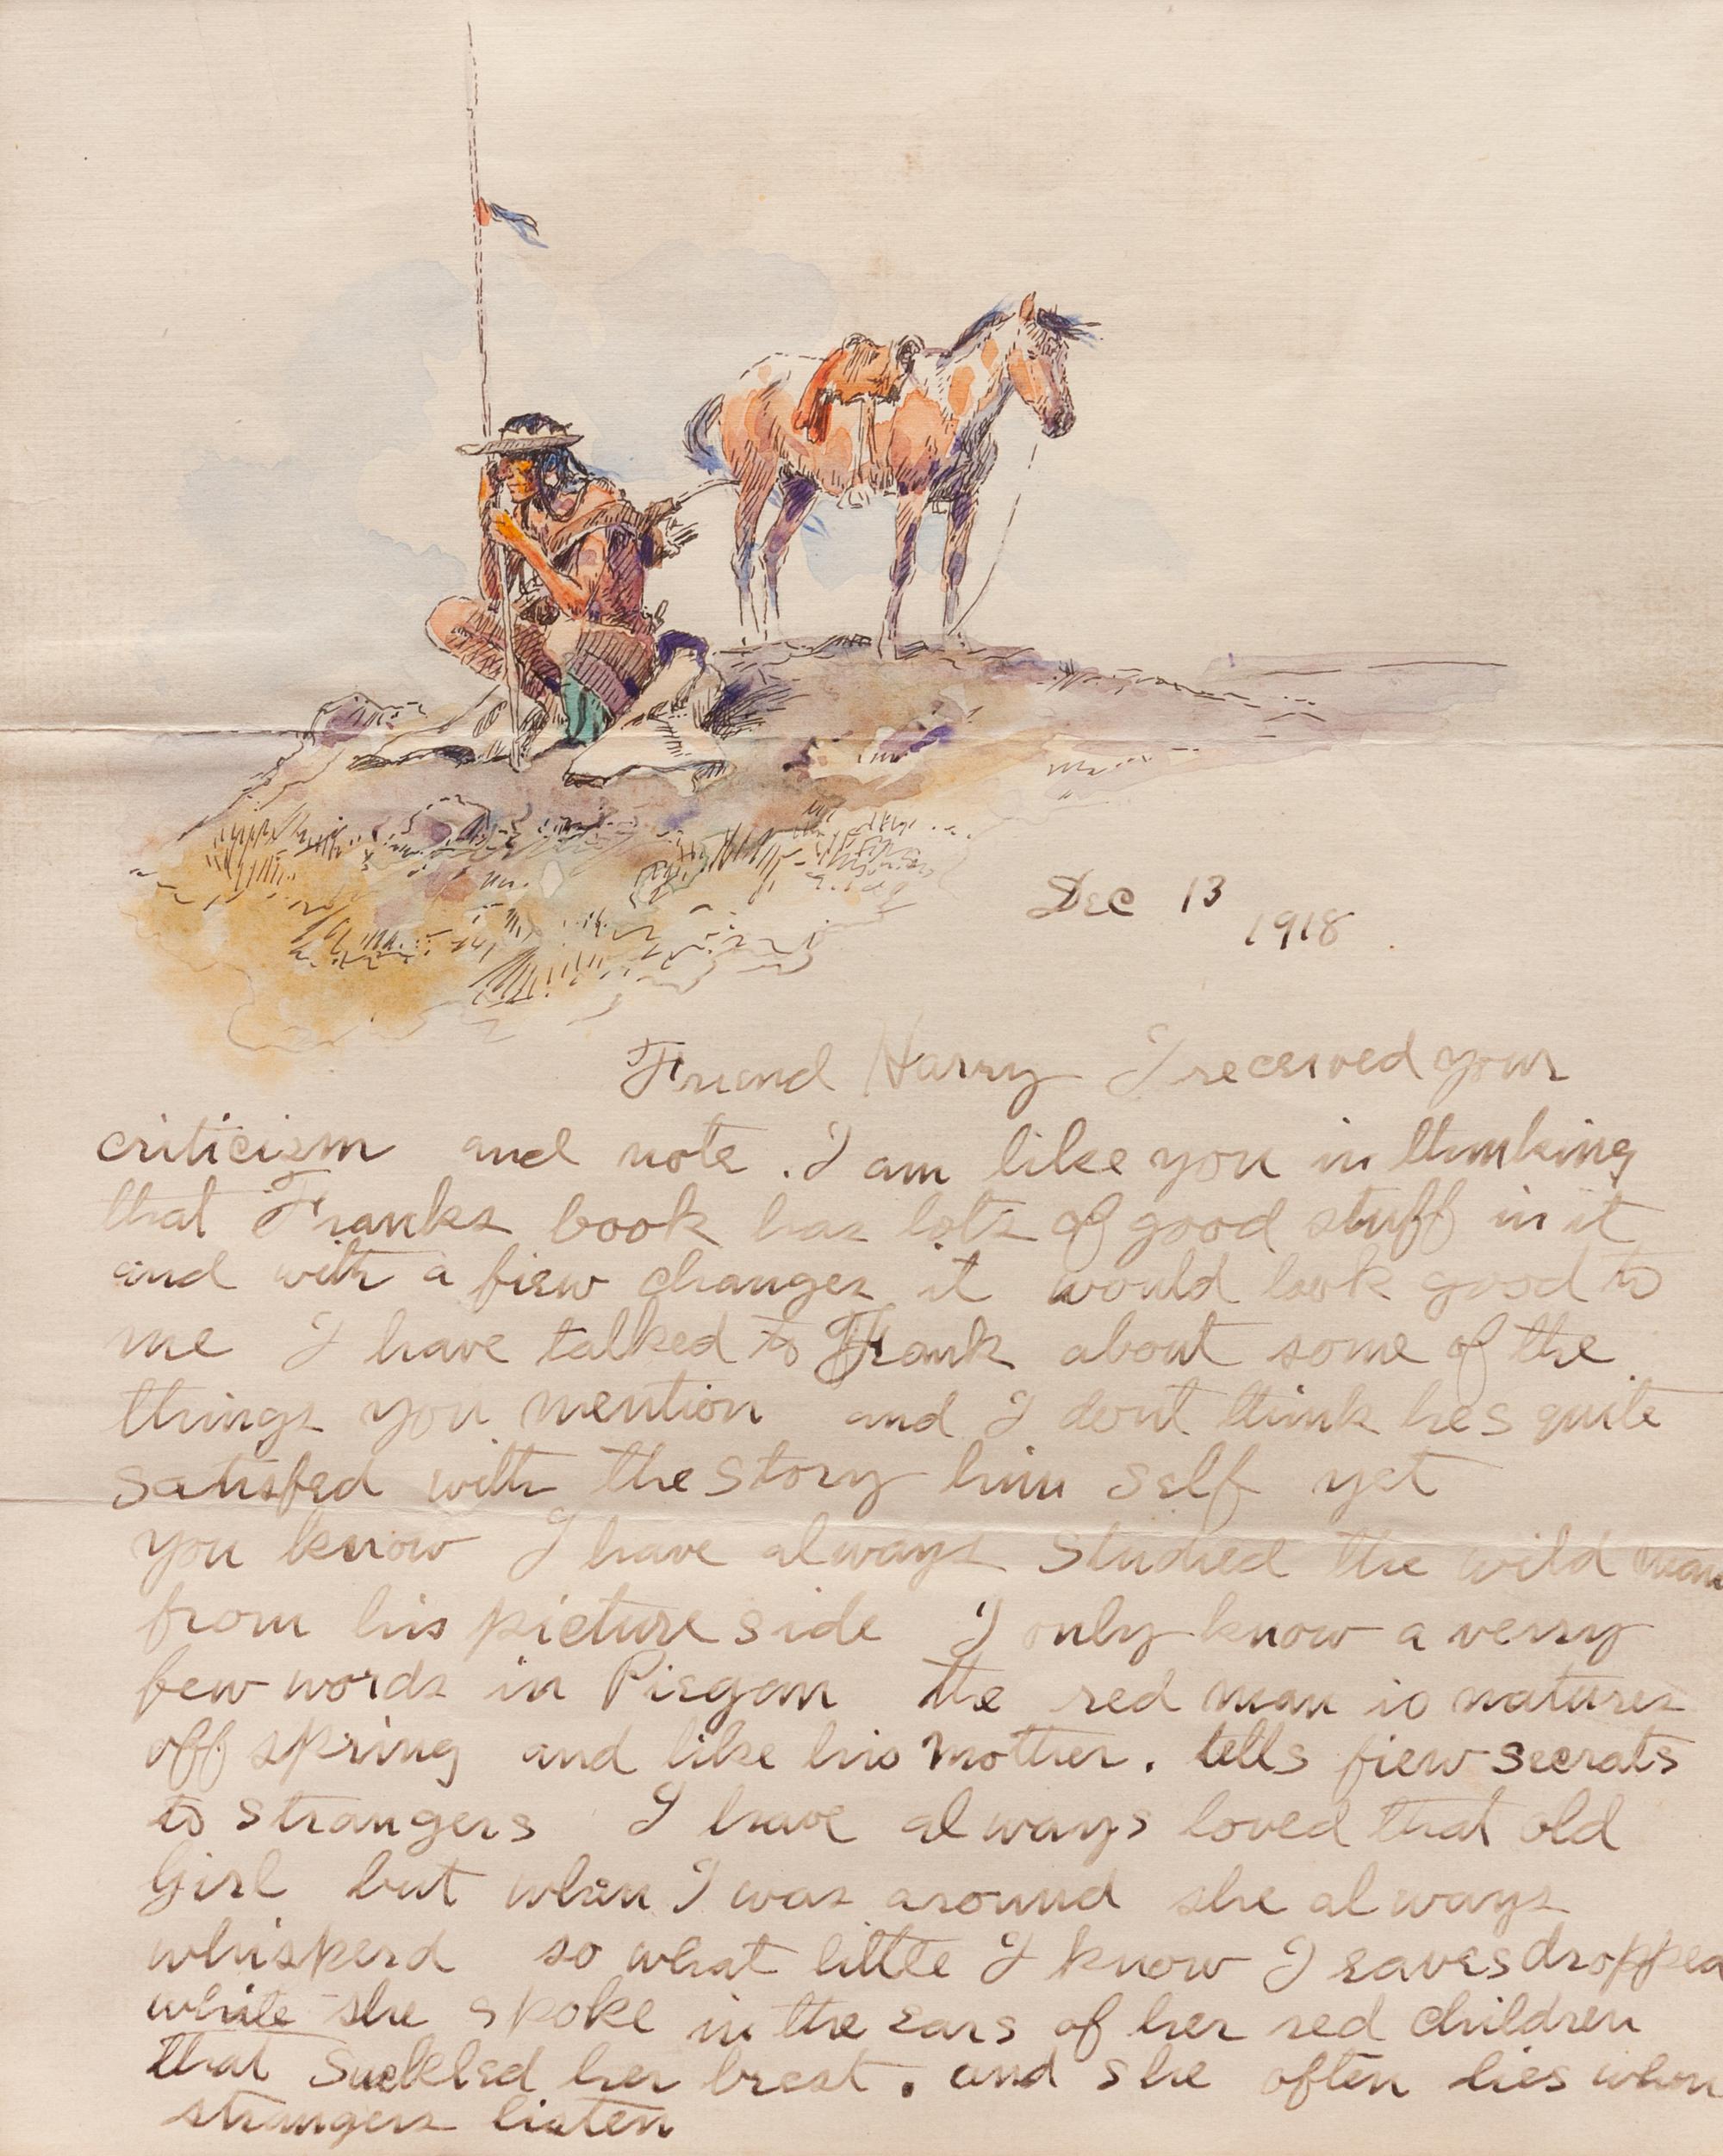 Dec 13
1918
Friend Harry I received your
criticism and note. I am like you in thinking
that Franks book has lots of good stuff in it
and with a fiew changes it would look good to
me I have talked to Frank about some of the
things you mention and I dont think hes quite
satisfed with the story him self yet
you know I have always studied the wild man
from his picture side I only know a verry
few words in Piegan the red man is natures
off spring and like his mother. tells fiew secrats
to strangers I have always loved that old
Girl but when I was around she always
whisperd so what little I know I eavesdropped
while she spoke in the ears of her red children
that Suckled her brest. and she often lies when
strangers listen